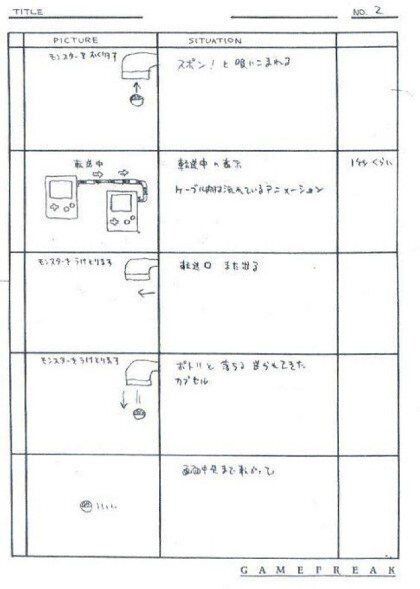 TITLE
NO. 2
PICTURE
SITUATION
モンスターをおくります
スポン！と吸いこまれる
転送中
転送中の表示
1秒くらい
ケーブル内は流れているアニメーション
モンスターをうけとります
転送口 また出る
モンスターをうけとります
ポトリと落ちる 送られてきた
カプセル
画面中央まで転がって
GAMEFREAK